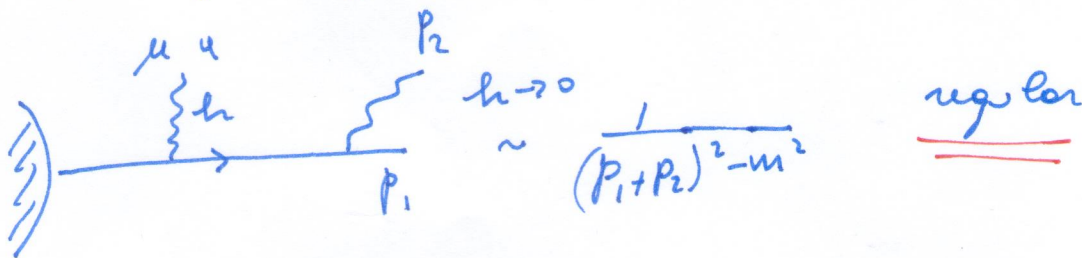 μ a
k
p₂
p₁
k→0
~
1
(p₁+p₂)²-m²
regular